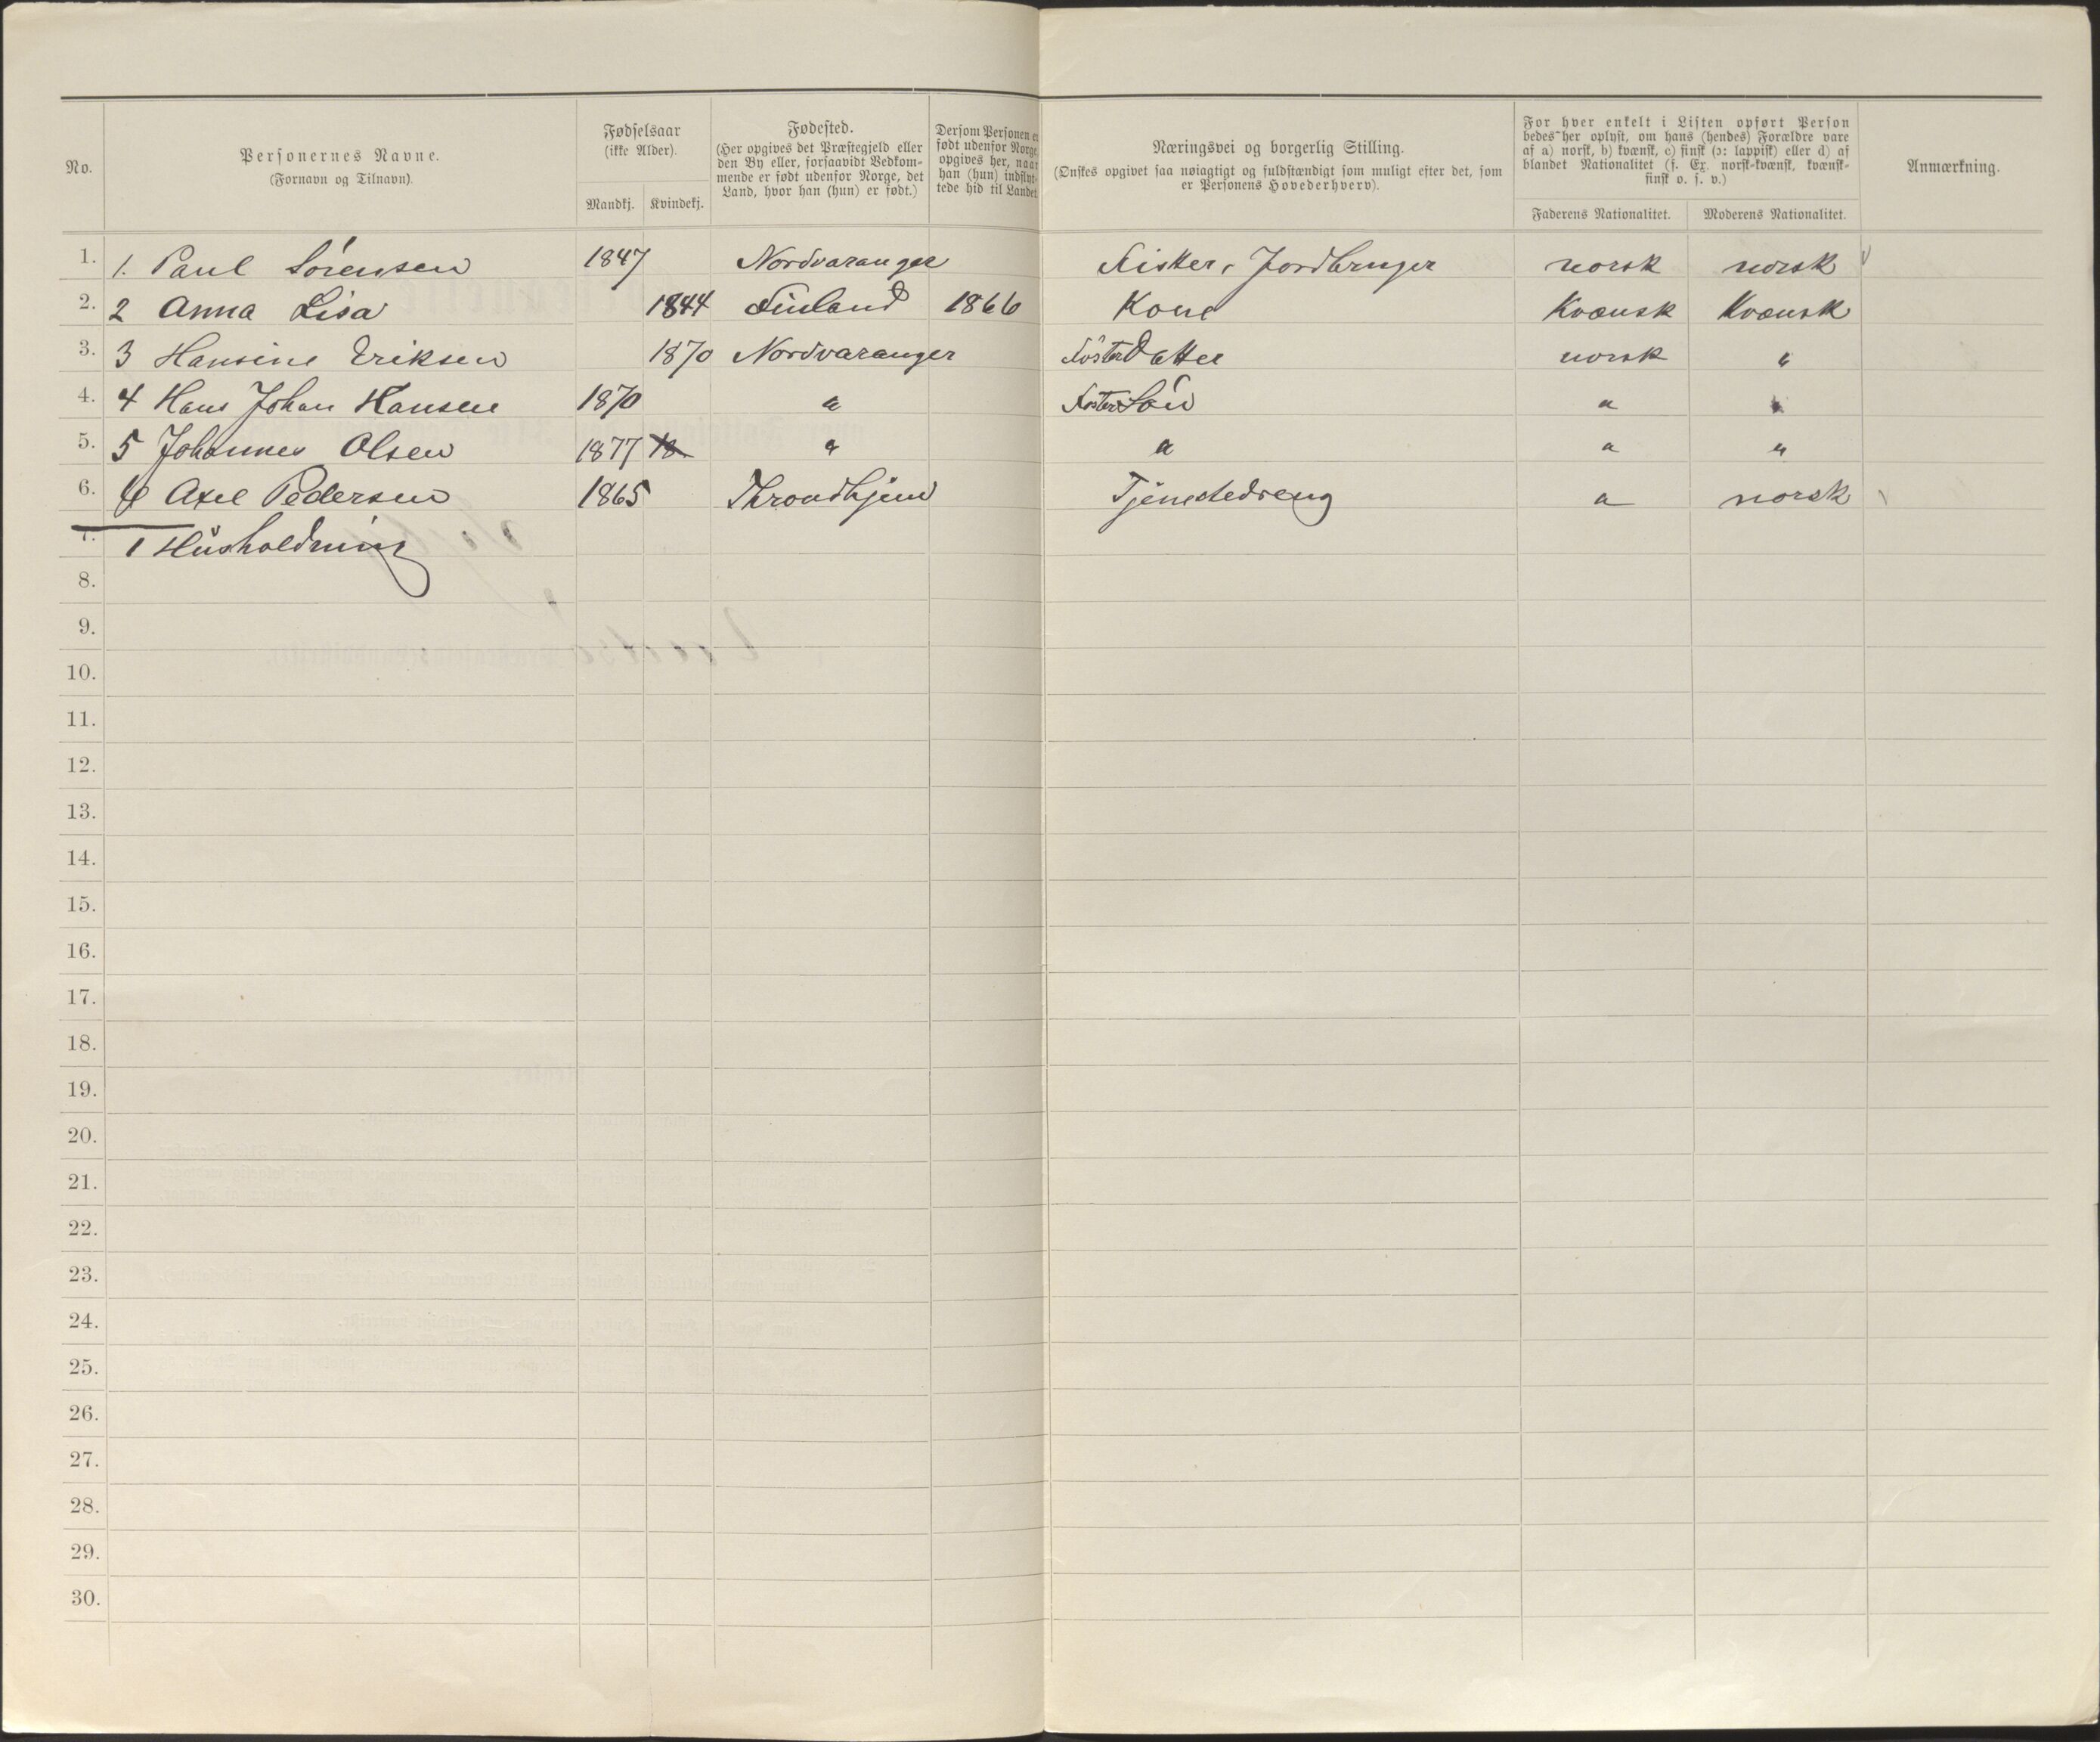 No.
Personernes Navne.
(Fornavn og Tilnavn).
Fødselsaar
(ikke Alder).
Mandkj. Kvindekj.
Fødested.
(Her opgives det Præstegjeld eller
den By eller, forsaavidt Vedkom-
mende er født udenfor Norge, det
Land, hvor han (hun) er født.)
Dersom Personen er
født udenfor Norge,
opgives her, naar
han (hun) indflyt-
tede hid til Landet
Næringsvei og borgerlig Stilling.
(Ønskes opgivet saa nøiagtigt og fuldstændigt som muligt efter det, som
er Personens Hovederhverv).
For hver enkelt i Listen opført Person
bedes her oplyst, om hans (hendes) Forældre vare
af a) norsk, b) kvænsk, c) finsk (ɔ: lappisk) eller d) af
blandet Nationalitet (f. Ex. norsk-kvænsk, kvænsk-
finsk o. s. v.)
Faderens Nationalitet. Moderens Nationalitet.
Anmærkning.
1. 1. Paul Sörensen 1847 Nordvaranger Fisker, Jordbruger norsk norsk
2. 2 Anna Lisa 1844 Finland 1866 Kone Kvænsk Kvænsk
3. 3 Hansine Eriksen 1870 Nordvaranger Fösterdatter norsk "
4. 4 Hans Johan Hansen 1870 " Fostersön " "
5. 5 Johannes Olsen 1877 18 " " " "
6. 6 Axel Pedersen 1865 Throndhjem Tjenestedreng " norsk
7. 1 Husholdning
8.
9.
10.
11.
12.
13.
14.
15.
16.
17.
18.
19.
20.
21.
22.
23.
24.
25.
26.
27.
28.
29.
30.